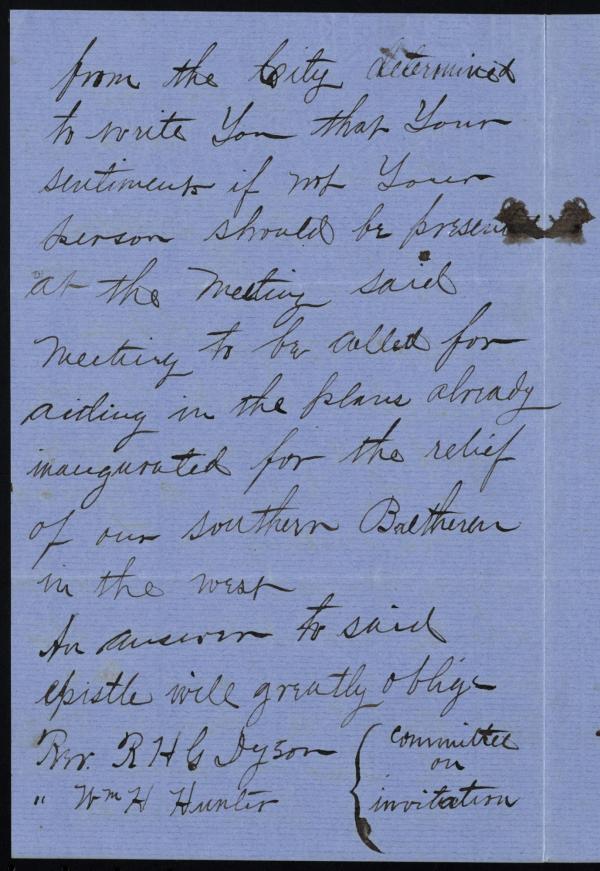 from the City determined
to write You that Your
sentiments if not Your
person should be present
at the Meeting said
Meeting to be called for
aiding in the plans already
inaugurated for the relief
of our southern Bretheren
in the west
An answer to said
epistle will greatly oblige
Rev. R H G Dyson
" Wm H Hunter
committee
on
invitation